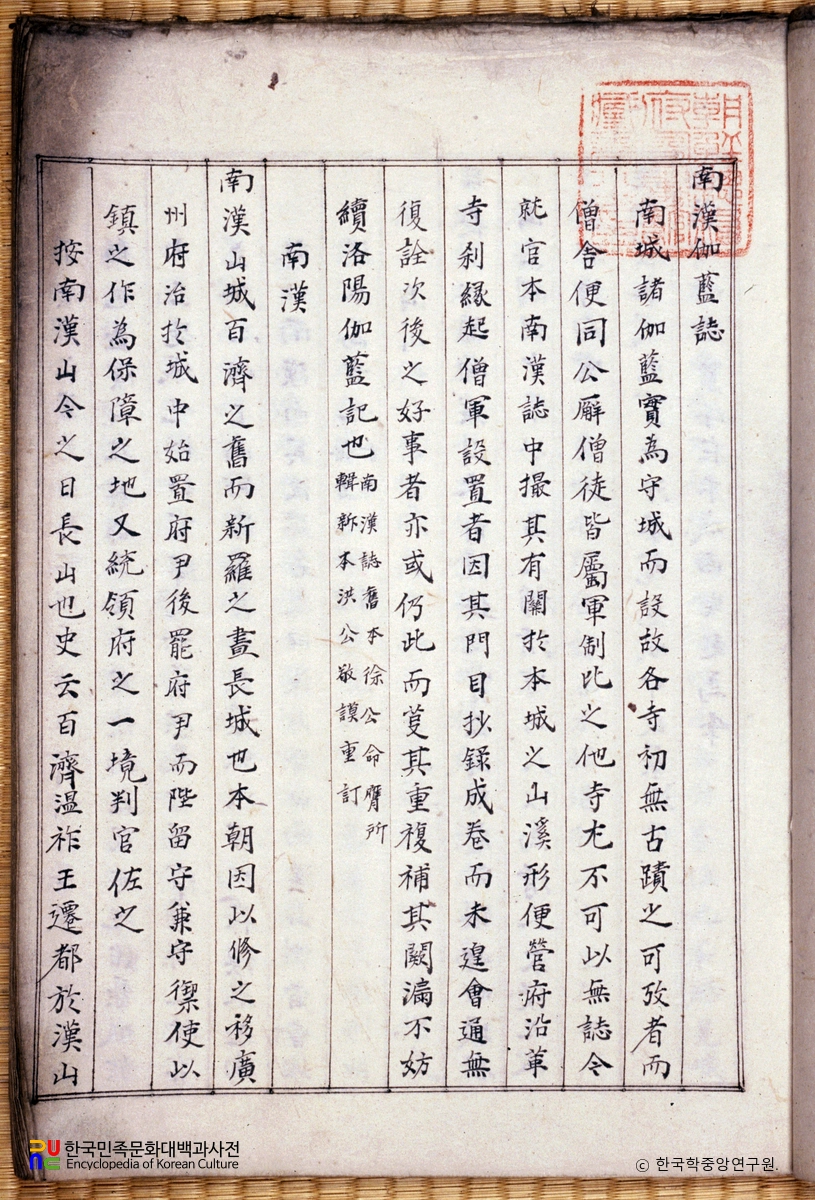 南漢伽藍誌
南城諸伽藍實為守城而設故各寺初無古蹟之可攷者而
僧舍便同公廨僧徒皆屬軍制比之他寺尤不可以無誌今
就官本南漢誌中撮其有關於本城之山溪形便營府沿革
寺刹緣起僧軍設置者因其門目抄錄成卷而未遑會通無
復詮次後之好事者亦或仍此而芟其重複補其闕漏不妨
續洛陽伽藍記也南漢誌舊本徐公命膺所
輯新本洪公敬謨重訂
南漢
南漢山城百濟之舊而新羅之晝長城也本朝因以修之移廣
州府治於城中始置府尹後罷府尹而陞留守兼守禦使以
鎮之作為保障之地又統領府之一境判官佐之
按南漢山今之日長山也史云百濟溫祚王遷都於漢山
한국민족문화대백과사전
Encyclopedia of Korean Culture
ⓒ 한국학중앙연구원.